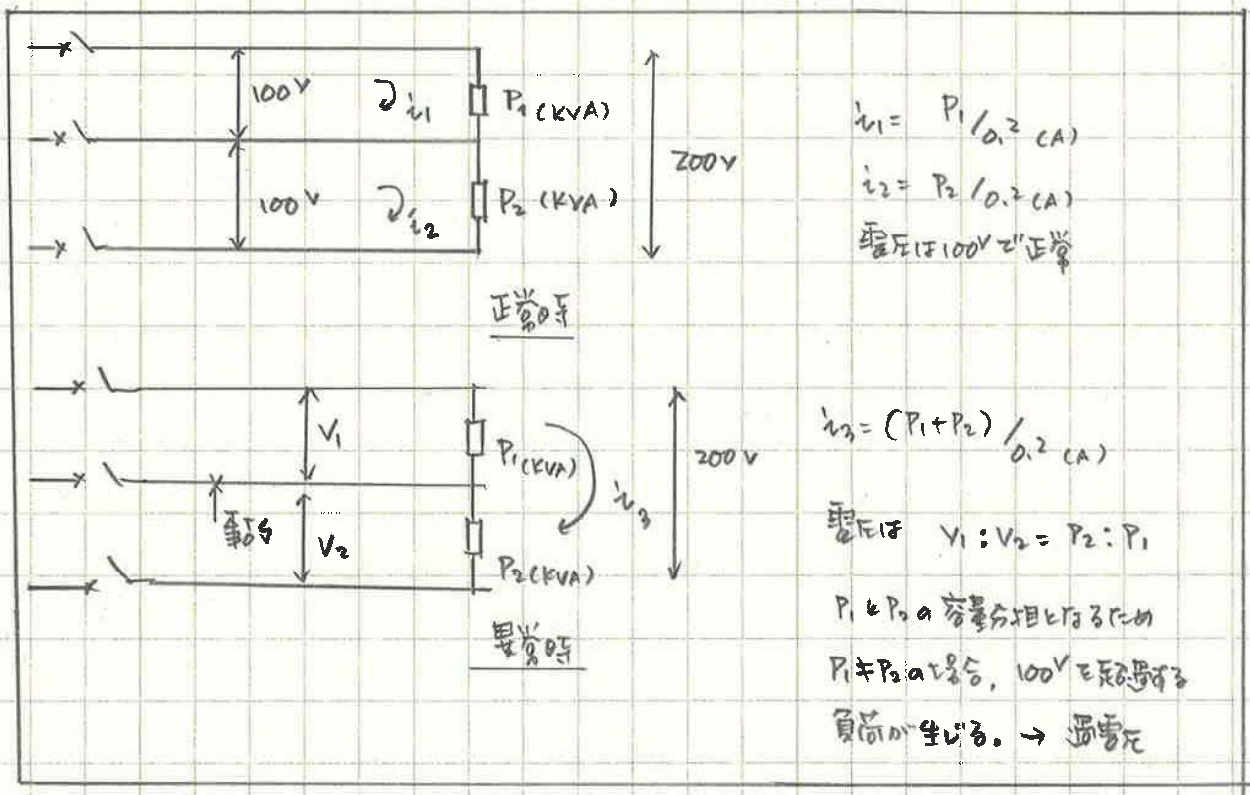 100V
i1
P1(KVA)
100V
i2
P2(KVA)
200V
i1= P1/0.2(A)
i2= P2/0.2(A)
電圧は100Vで正常
正常時
V1
P1(KVA)
V2
P2(KVA)
i3
200V
i3=(P1+P2)/0.2(A)
電圧は V1:V2=P2:P1
P1とP2の容量分担となるため
P1≠P2の場合, 100Vを超過する
負荷が生じる。→ 過電圧
異常時